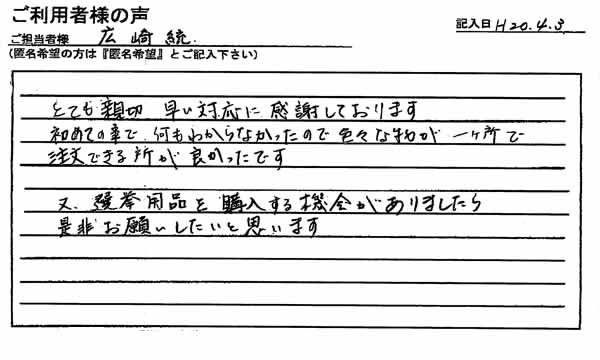 ご利用者様の声
記入日 H20.4.3
ご担当者様 広崎統
(匿名希望の方は『匿名希望』とご記入下さい)
とても親切 早い対応に感謝しております
初めての事で 何もわからなかったので色々な物が一ヶ所で
注文できる所が良かったです
又、選挙用品を購入する機会がありましたら
是非お願いしたいと思います